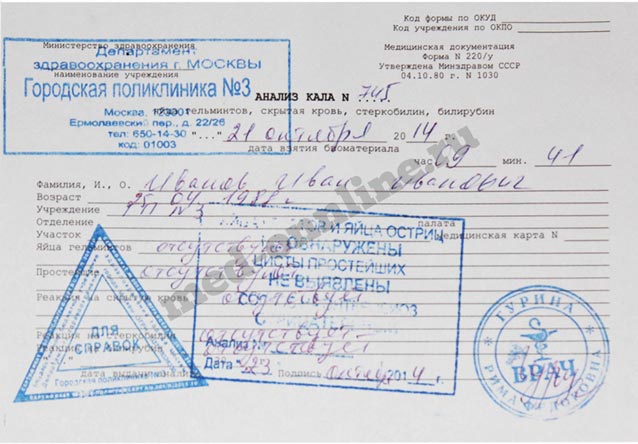 Код формы по ОКУД
Код учреждения по ОКПО
Министерство здравоохранения
Медицинская документация
Форма N 220/у
Утверждена Минздравом СССР
04.10.80 г. N 1030
Департамент
здравоохранения г. МОСКВЫ
наименование учреждения
Городская поликлиника №3
Москва, 123001
Ермолаевский пер., д. 22/26
тел: 650-14-30
код: 01003
АНАЛИЗ КАЛА N 745
гельминтов, скрытая кровь, стеркобилин, билирубин
"..." 21 октября 2014 г.
дата взятия биоматериала
час 09 мин. 41
Фамилия, И., О. Иванов Иван Иванович
Возраст
Учреждение ГП №3
Отделение палата
Участок медицинская карта N
Яйца гельминтов отсутствуют
Простейшие отсутствуют
Реакция на скрытую кровь отсутствует
Реакция на стеркобилин отсутствует
отсутствует
И ЯЙЦА ОСТРИЦ
НЕ ОБНАРУЖЕНЫ
ЦИСТЫ ПРОСТЕЙШИХ
НЕ ВЫЯВЛЕНЫ
Анализ №
Дата "23" 2014 г.
Подпись
ДЛЯ
СПРАВОК
Городская поликлиника №3
ГУРИНА
ВРАЧ
med-online.ru